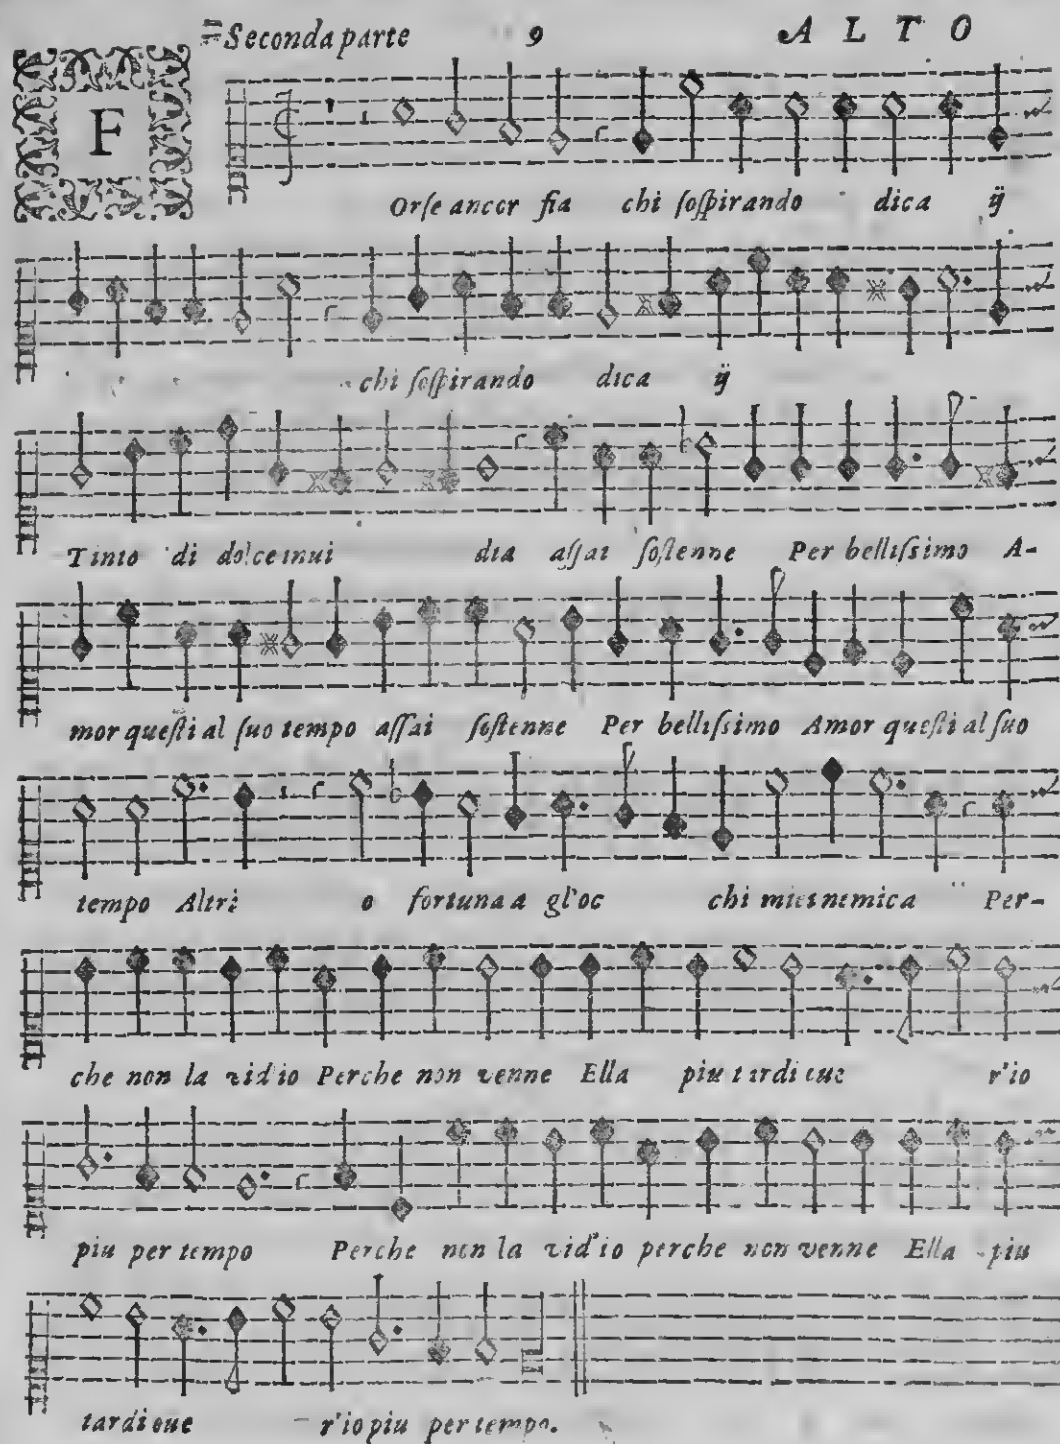 Seconda parte 9 ALTO
F
Orſe ancor fia chi ſoſpirando dica ij
chi ſoſpirando dica ij
Tinto di dolce inui dia aſſai ſoſtenne Per belliſsimo A-
mor queſti al ſuo tempo aſſai ſoſtenne Per belliſsimo Amor queſti al ſuo
tempo Altri o fortuna a gl'oc chi miei nemica Per-
che non la vid'io Perche non venne Ella piu tardi oue r'io
piu per tempo Perche non la vid'io perche non venne Ella piu
tardi oue r'io piu per tempo.